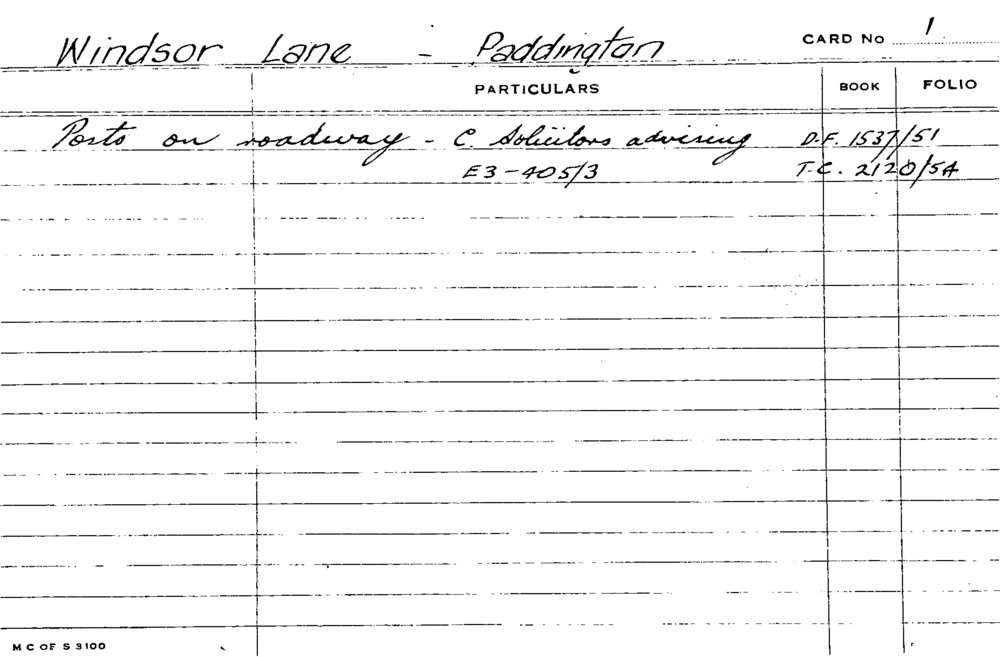 Windsor Lane - Paddington CARD No 1
PARTICULARS BOOK FOLIO
Posts on roadway - C. Solicitors advising D.F. 1537/51
E3-405/3 T.C. 2120/54
M C OF S 3100